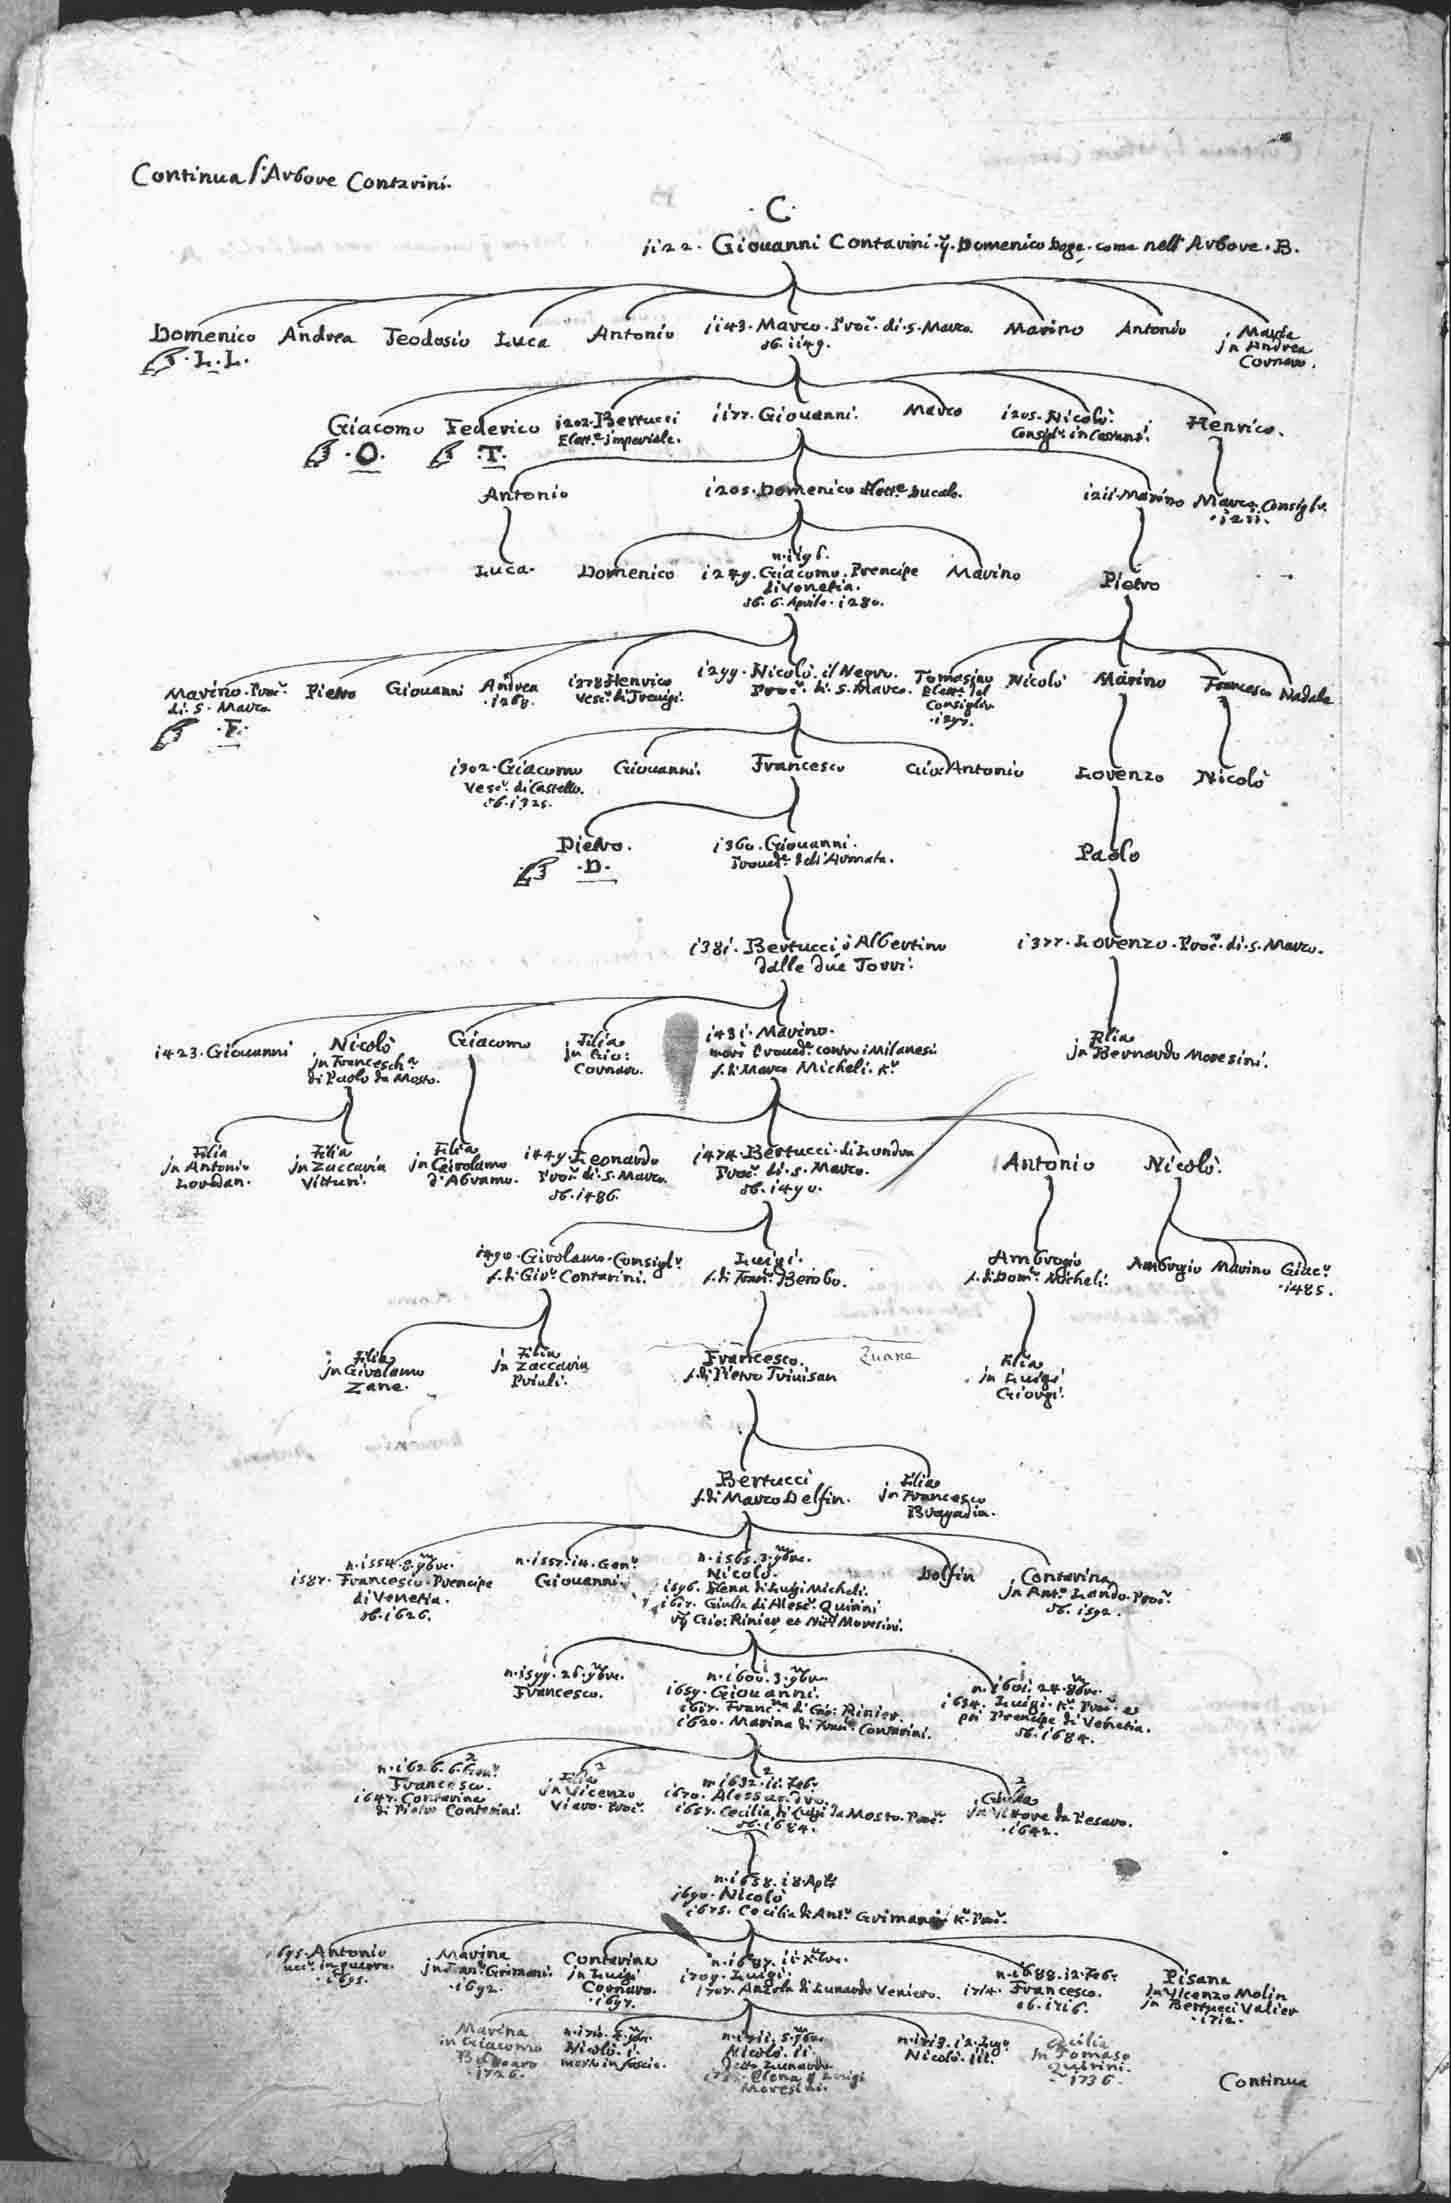 Continua l'Arbore Contarini.
.C.
1122. Giouanni Contarini. q. Domenico Doge, come nell'Arbore. B.
Domenico Andrea Teodosio Luca Antonio 1143. Marco. Proc.r di. S. Marco. Marino Antonio Maria
.L.L. ob. 1149. jn Andrea
Cornaro.
Giacomo Federico 1202. Bertucci 1177. Giouanni. Marco 1205. Nicolò. Henrico.
.O. .T. Elett.e imperiale. Consigl.r
Antonio 1205. Domenico Elett.e Ducale. 1211. Marino Marco Consigl.r
Luca. Domenico n. 1196. Marino Pietro
1249. Giacomo. Prencipe
di Venetia.
ob. 6. Aprile. 1280.
Marino. Proc.r Pietro Giouanni Andrea 1278 Henrico 1299. Nicolò. il Negro. Tomasino Nicolò Marino Francesco Nadale
di. S. Marco .1268. Vesc.o di Treuigi. Proc.r di. S. Marco. Elett. del
.F. Consiglio
.1297.
1302. Giacomo Giouanni. Francesco Antonio Lorenzo Nicolò
Vesc.o di Castello.
ob. 1325.
Pietro. 1360. Giouanni. Paolo
.D. Proued.r dell'Armata.
1381. Bertucci ò Albertino 1377. Lorenzo. Proc.r di. S. Marco.
dalle due Torri.
1423. Giouanni Nicolò Giacomo Filia 1431. Marino. Filia
jn Francesch.a jn Gio: morì Proued.r contro i Milanesi jn Bernardo Moresini.
di Paolo da Mosto. Cornaro. f. di Marco Micheli. K.r
Filia Filia Filia 1449. Leonardo 1474. Bertucci. di Londra Antonio Nicolò.
jn Antonio jn Zaccaria jn Girolamo Proc.r di. S. Marco. Proc.r di. S. Marco.
Loredan. Vitturi. d'Abramo. ob. 1486. ob. 1490.
1490. Girolamo. Consigl.r Luigi. Ambrogio Ambrogio Marino Giac.o
f. di Gir.o Contarini. f. di Fran.o Bembo. f. di Dom.o Micheli. .1485.
Filia Filia Francesco. Zuane Filia
jn Girolamo jn Zaccaria f. di Pietro Triuisan jn Luigi
Zane. Priuli. Giorgi.
Bertucci Filia
f. di Marco Delfin. jn Francesco
Bragadin.
n. 1554. 8. 9bre. n. 1557. 14. Gen.o n. 1565. 3. 9bre. Dolfin Contarina
1587. Francesco. Prencipe Giouanni. Nicolò. jn Ant.o Lando. Proc.r
di Venetia. 1596. Elena di Luigi Micheli. ob. 1592.
ob. 1626. 1617. Giulia di Aless.o Quirini
Gio: Rinier, et Nic.o Moresini.
n. 1599. 26. 9bre. n. 1600. 3. 9bre. n. 1601. 24. 8bre.
Francesco. 1659. Giouanni. 1634. Luigi. K.r Proc.r et
1617. Franc.na di Gio: Rinier. poi Prencipe di Venetia.
1620. Marina di Fran.o Contarini. ob. 1684.
n. 1626. 6. Gen.o Filia n. 1632. 11. Feb.o Giulia
Francesco. jn Vicenzo 1670. Alessandro. jn Vittore da Pesaro.
1647. Contarina Viaro. Proc.r 1657. Cecilia di Luigi da Mosto. Proc.r .1642.
di Pietro Contarini. ob. 1684.
n. 1658. 18. Aple
1690. Nicolò
1675. Cecilia di Ant.o Grimani K.r Proc.r
1695. Antonio Marina Contarina n. 1687. 11. Xbre. n. 1688. 12. Feb.o Pisana
ucc.o in guerra. jn Fran.o Grimani. jn Luigi 1709. Luigi. 1714. Francesco. jn Vicenzo Molin
.1695. .1692. Cornaro. 1707. Anzola di Lunardo Veniero. ob. 1716. jn Bertucci Valier
.1697. .1712.
Marina n. 1710. n. 1711. 5. n. 1713. 12. Lug.o Cecilia
in Giacomo Nicolò. I. Nicolò. II. Nicolò. III. In Tomaso
morto in fascie. detto Lunardo Quirini.
.1726. Elena q. Luigi .1736.
Moresini.
Continua